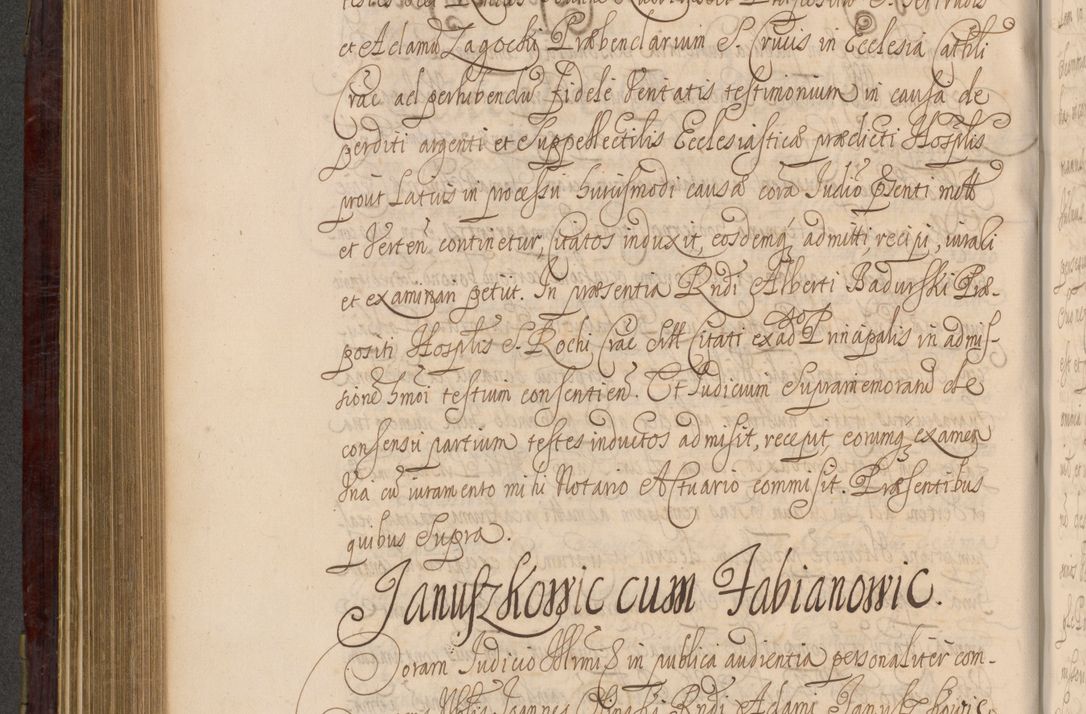 et Adamū Zagocki Præbendarium S. Crucis in Ecclesia Cathli
Crac ad perhibendū fidele Veritatis testimonium in causa de
perditi argenti et Suppellectilis Ecclesiasticæ prædicti Hosplis
prout Latius in processu huiusmodi causæ corā Iudio Pŝenti mott
et Verteñ continetur, citatos induxit, eosdemq́ admitti, recipi, iurari
et examinari petut. In præsentia Rndi Alberti Badurski Præ-
positi Hosplis S. Rochi Crac citati ex adº Principalis in admis-
sionē hmoi testium consentieñ. Et Iudicium Supramemorand de
consensu partium testes inductos admisit, recepit, eorumq́ examen
cū iuramento mihi Notario Actuario commisit. Præsentibus
quibus Supra.
Januszkowic cum Fabianowic.
Coram Iudicio in publica audientia personaliter com-
Joannes Rndi Adami Januszkowic